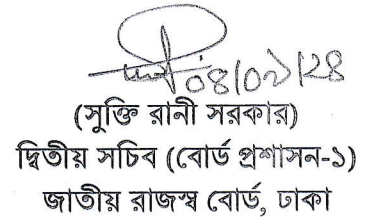 ০৪/০১/২৪
(সুক্তি রানী সরকার)
দ্বিতীয় সচিব (বোর্ড প্রশাসন-১)
জাতীয় রাজস্ব বোর্ড, ঢাকা